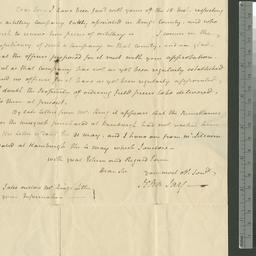 Dear Sir, I have been favd with yours of the 18 Inst. respecting
a military company lately associated in Kings county, and who
wish to receive two pieces of military
I concur in the
expediency of such a company in that county, and am glad
that the officers proposed for it meet with your approbation
but as that company has not as yet been regularly established
and no officers for it have as yet been regularly appointed,
I doubt the propriety of ordering field pieces to be delivered
to them at present.
By late letters from Mr. King it appears that the Remittances
for the musquets purchased at Hamburgh had not reached him
His letter is dated the 31 May; and I have one from Mr
dated at Hamburgh the 14 May which I enclose.
with great Esteem and Regard I am
Dear Sir
your most obt. Servt.
John Jay
I also enclose Mr. Kings Letter
your Information